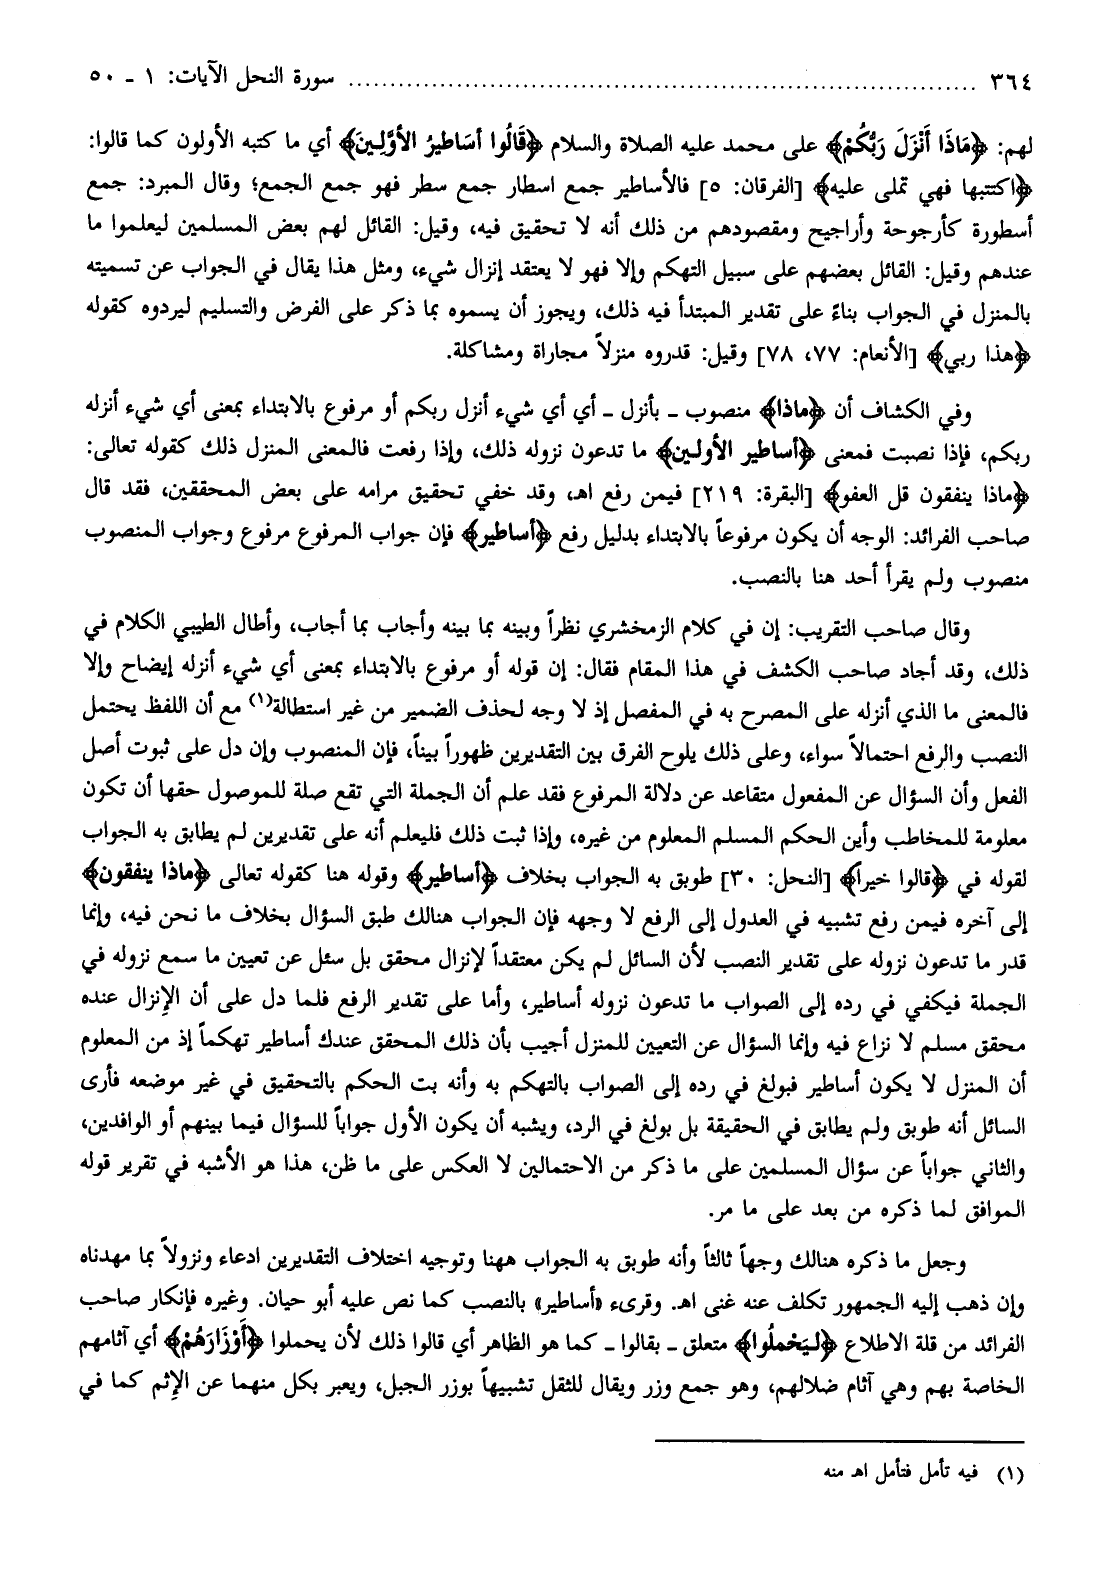 ٣٦٤ ................................ سورة النحل الآيات: ١ ـ ٥٠
لهم: ﴿مَاذَا أَنْزَلَ رَبُّكُمْ﴾ على محمد عليه الصلاة والسلام ﴿قَالُوا أسَاطيرُ الأوَّلِينَ﴾ أي ما كتبه الأولون كما قالوا:
﴿اكتتبها فهي تملى عليه﴾ [الفرقان: ٥] فالأساطير جمع اسطار جمع سطر فهو جمع الجمع؛ وقال المبرد: جمع
أسطورة كأرجوحة وأراجيح ومقصودهم من ذلك أنه لا تحقيق فيه، وقيل: القائل لهم بعض المسلمين ليعلموا ما
عندهم وقيل: القائل بعضهم على سبيل التهكم وإلا فهو لا يعتقد إنزال شيء، ومثل هذا يقال في الجواب عن تسميته
بالمنزل في الجواب بناءً على تقدير المبتدأ فيه ذلك، ويجوز أن يسموه بما ذكر على الفرض والتسليم ليردوه كقوله
﴿هذا ربي﴾ [الأنعام: ٧٧، ٧٨] وقيل: قدروه منزلاً مجاراة ومشاكلة.
وفي الكشاف أن ﴿ماذا﴾ منصوب ـ بأنزل ـ أي أي شيء أنزل ربكم أو مرفوع بالابتداء بمعنى أي شيء أنزله
ربكم، فإذا نصبت فمعنى ﴿أساطير الأولين﴾ ما تدعون نزوله ذلك، وإذا رفعت فالمعنى المنزل ذلك كقوله تعالى:
﴿ماذا ينفقون قل العفو﴾ [البقرة: ٢١٩] فيمن رفع اهـ، وقد خفي تحقيق مرامه على بعض المحققين، فقد قال
صاحب الفرائد: الوجه أن يكون مرفوعاً بالابتداء بدليل رفع ﴿أساطير﴾ فإن جواب المرفوع مرفوع وجواب المنصوب
منصوب ولم يقرأ أحد هنا بالنصب.
وقال صاحب التقريب: إن في كلام الزمخشري نظراً وبينه بما بينه وأجاب بما أجاب، وأطال الطيبي الكلام في
ذلك، وقد أجاد صاحب الكشف في هذا المقام فقال: إن قوله أو مرفوع بالابتداء بمعنى أي شيء أنزله إيضاح وإلا
فالمعنى ما الذي أنزله على المصرح به في المفصل إذ لا وجه لحذف الضمير من غير استطالة(١) مع أن اللفظ يحتمل
النصب والرفع احتمالاً سواء، وعلى ذلك يلوح الفرق بين التقديرين ظهوراً بيناً، فإن المنصوب وإن دل على ثبوت أصل
الفعل وأن السؤال عن المفعول متقاعد عن دلالة المرفوع فقد علم أن الجملة التي تقع صلة للموصول حقها أن تكون
معلومة للمخاطب وأين الحكم المسلم المعلوم من غيره، وإذا ثبت ذلك فليعلم أنه على تقديرين لم يطابق به الجواب
لقوله في ﴿قالوا خيراً﴾ [النحل: ٣٠] طوبق به الجواب بخلاف ﴿أساطير﴾ وقوله هنا كقوله تعالى ﴿ماذا ينفقون﴾
إلى آخره فيمن رفع تشبيه في العدول إلى الرفع لا وجهه فإن الجواب هنالك طبق السؤال بخلاف ما نحن فيه، وإنما
قدر ما تدعون نزوله على تقدير النصب لأن السائل لم يكن معتقداً لإنزال محقق بل سئل عن تعيين ما سمع نزوله في
الجملة فيكفي في رده إلى الصواب ما تدعون نزوله أساطير، وأما على تقدير الرفع فلما دل على أن الإنزال عنده
محقق مسلم لا نزاع فيه وإنما السؤال عن التعيين للمنزل أجيب بأن ذلك المحقق عندك أساطير تهكماً إذ من المعلوم
أن المنزل لا يكون أساطير فبولغ في رده إلى الصواب بالتهكم به وأنه بت الحكم بالتحقيق في غير موضعه فأرى
السائل أنه طوبق ولم يطابق في الحقيقة بل بولغ في الرد، ويشبه أن يكون الأول جواباً للسؤال فيما بينهم أو الوافدين،
والثاني جواباً عن سؤال المسلمين على ما ذكر من الاحتمالين لا العكس على ما ظن، هذا هو الأشبه في تقرير قوله
الموافق لما ذكره من بعد على ما مر.
وجعل ما ذكره هنالك وجهاً ثالثاً وأنه طوبق به الجواب ههنا وتوجيه اختلاف التقديرين ادعاء ونزولاً بما مهدناه
وإن ذهب إليه الجمهور تكلف عنه غنى اهـ. وقرىء «أساطير» بالنصب كما نص عليه أبو حيان. وغيره فإنكار صاحب
الفرائد من قلة الاطلاع ﴿لِيَحْمِلُوا﴾ متعلق ـ بقالوا ـ كما هو الظاهر أي قالوا ذلك لأن يحملوا ﴿أَوْزَارَهُمْ﴾ أي آثامهم
الخاصة بهم وهي آثام ضلالهم، وهو جمع وزر ويقال للثقل تشبيهاً بوزر الجبل، ويعبر بكل منهما عن الإثم كما في
(١) فيه تأمل فتأمل اهـ منه